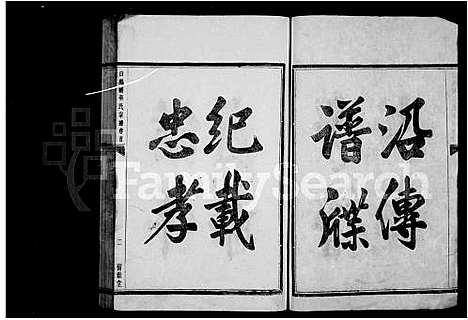 沿傳
譜牒
紀載
忠孝
FamilySearch